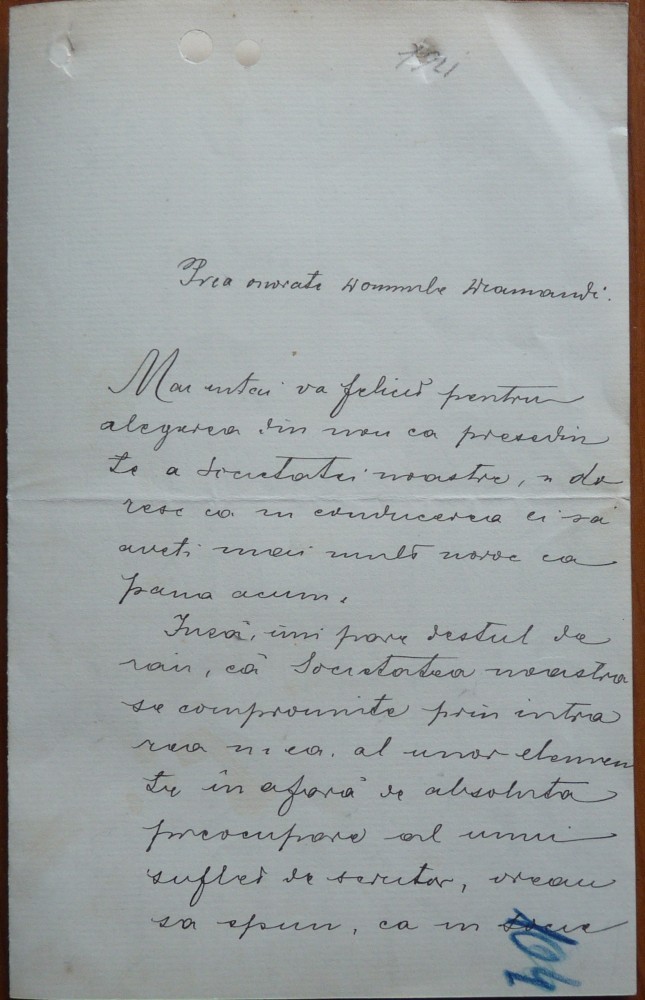 Prea onorate Domnule Diamandi.
Mai intai va felicit pentru
alegerea din nou ca presedin
te a Societatei noastre, si do
resc ca in conducerea ei sa
aveti mai mult noroc ca
pana acum.
Insă, imi pare destul de
rău, că Societatea noastra
se compromite prin intra
rea in ea, al unor elemen
te în afară de absoluta
preocupare al unui
suflet de scriitor, vreau
sa spun, ca in socie
164